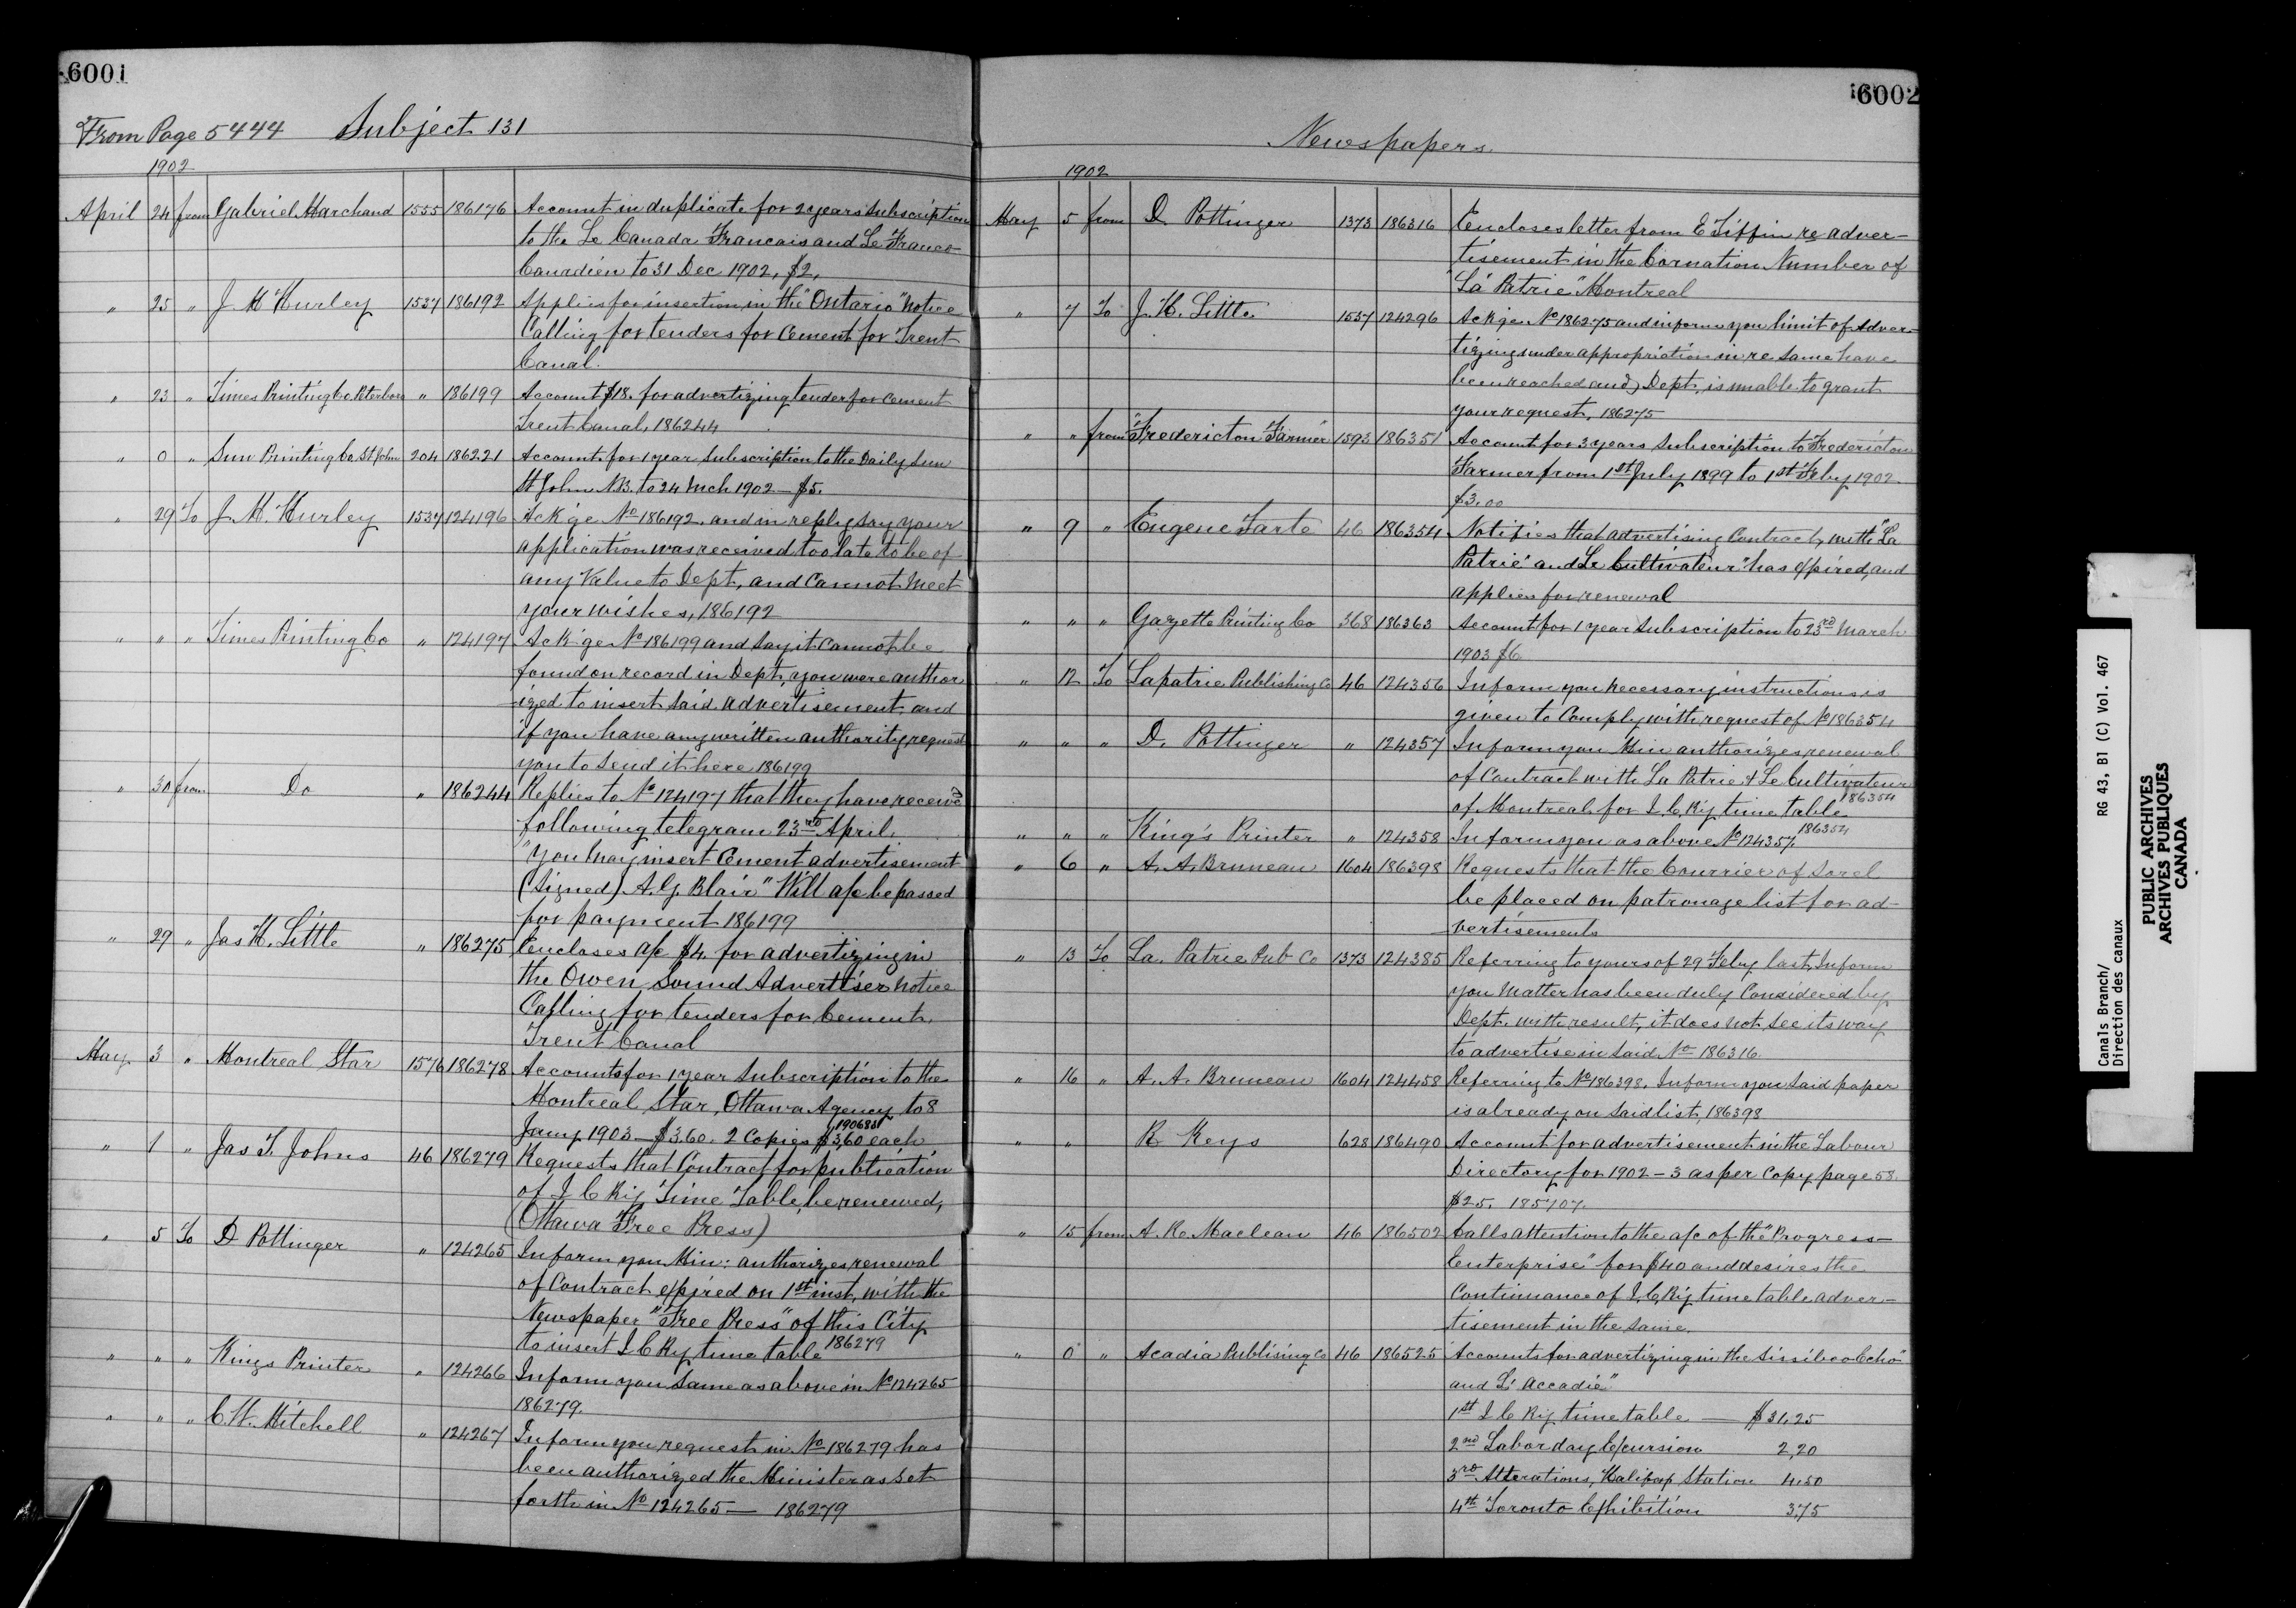 6001
From Page 5444 Subject 131
1902
April 24 from Gabriel Marchand 1555 186176 Account in duplicate for 2 years Subscription
to the Le Canada Francais and Le Franco-
Canadien to 31 Dec 1902, $2,
" 25 " J. M Hurley 1537 186192 Applies for insertion in the "Ontario" notice
Calling for tenders for Cement for Trent
Canal.
" 23 " Times Printing Co Peterboro " 186199 Account $18. for advertizing tender for Cement
Trent Canal, 186244
" 0 " Sun Printing Co. St John 204 186221 Account for 1 year Subscription to the Daily Sun
St John N.B. to 24 Mch 1902 - $5.
" 29 To J. M. Hurley 1537 124196 Ack'ge No 186192. and in reply say your
application was received too late to be of
any Value to Dept, and Cannot Meet
your wishes, 186192
" " " Times Printing Co " 124197 Ack'ge No 186199 and say it Cannot be
found on record in Dept, you were author
ized to insert said advertisement, and
if you have any written authority, request
you to Send it here 186199
" 30 from Do " 186244 Replies to No 124197 that they have receiv'd
following telegram 23rd April,
"You may insert Cement advertisement
(Signed) A. G. Blair" Will a/c be passed
for payment 186199
" 29 " Jas H. Little " 186275 Encloses a/c $4. for advertizing in
the Owen Sound Advertiser notice
Calling for tenders for Cement,
Trent Canal
May 3 " Montreal Star 1576 186278 Accounts for 1 year Subscription to the
Montreal Star, Ottawa Agency to 8
Jany 1903 - $3.60. 2 Copies $3,60 each 190683
" 1 " Jas T. Johns 46 186279 Requests that Contract for publication
of I C Ry Time Table, be renewed,
(Ottawa Free Press)
" 5 To D Pottinger " 124265 Inform you Min: authorizes renewal
of Contract expired on 1st inst, with the
Newspaper "Free Press" of this City
to insert I C Ry time table 186279
" " " Kings Printer " 124266 Inform you Same as above in No 124265
186279.
" " " C. W. Mitchell " 124267 Inform you request in No 186279 has
been authorized the Minister as Set
forth in No 124265 - 186279
6002
Newspapers.
1902
May 5 from D. Pottinger 1373 186316 Encloses letter from E Tiffin re adver-
tisement in the Cornation Number of
"La Patrie" Montreal
" 7 To J. H. Little 1537 124296 Ack'ge No 186275 and inform you limit of Adver-
tizing under appropriation in re same have
been reached and Dept, is unable to grant
your request, 186275
" " from "Fredericton Farmer" 1593 186351 Account for 3 years Subscription to Fredericton
Farmer from 1st July 1899 to 1st Feby 1902
$3.00
" 9 " Eugene Tarte 46 186354 Notifies that advertising Contract, with "La
Patrie" and Le Cultivateur" has expired, and
applies for renewal
" " " Gazette Printing Co 368 186363 Account for 1 year Subscription to 23rd March
1903 $6
" 12 To Lapatrie Publishing Co 46 124356 Inform you necessary instructions is
given to Comply with request of No 186354
" " " D. Pottinger " 124357 Inform you Min authorizes renewal
of Contract with La Patrie & Le Cultivateur
of Montreal for I. C. Ry time table 186354
" " " King's Printer " 124358 Inform you as above No 124357, 186354
" 6 " A. A. Bruneau 1604 186398 Requests that the Courrier of Sorel
be placed on patronage list for ad-
vertisements
" 13 To La. Patrie Pub Co 1373 124385 Referring to yours of 29 Feby last, Inform
you Matter has been duly Considered by
Dept. with result, it does not See its way
to advertise in Said No 186316.
" 16 " A. A. Bruneau 1604 124458 Referring to No 186398. Inform you Said paper
is already on Said list, 186398
" " R. Keys 628 186490 Account for advertisement in the Labour
Directory for 1902-3 as per Copy page 58.
$25. 185707.
" 15 from A. K. Maclean 46 186502 Calls attention to the a/c of the "Progress-
Enterprise" for $40 and desires the
Continuance of I. C. Ry time table adver-
tisement in the Same.
" 0 " Acadia Publising Co 46 186525 Accounts for advertizing in the Sissiboo Echo"
and L' Accadie"
1st I C Ry time table — $31,25
2nd Labor day Excursion 2,20
3rd Alterations, Halifax Station 4.50
4th Toronto Exhibition 3,75
Canals Branch/ RG 43, B1 (C) Vol. 467
Direction des canaux
PUBLIC ARCHIVES
ARCHIVES PUBLIQUES
CANADA